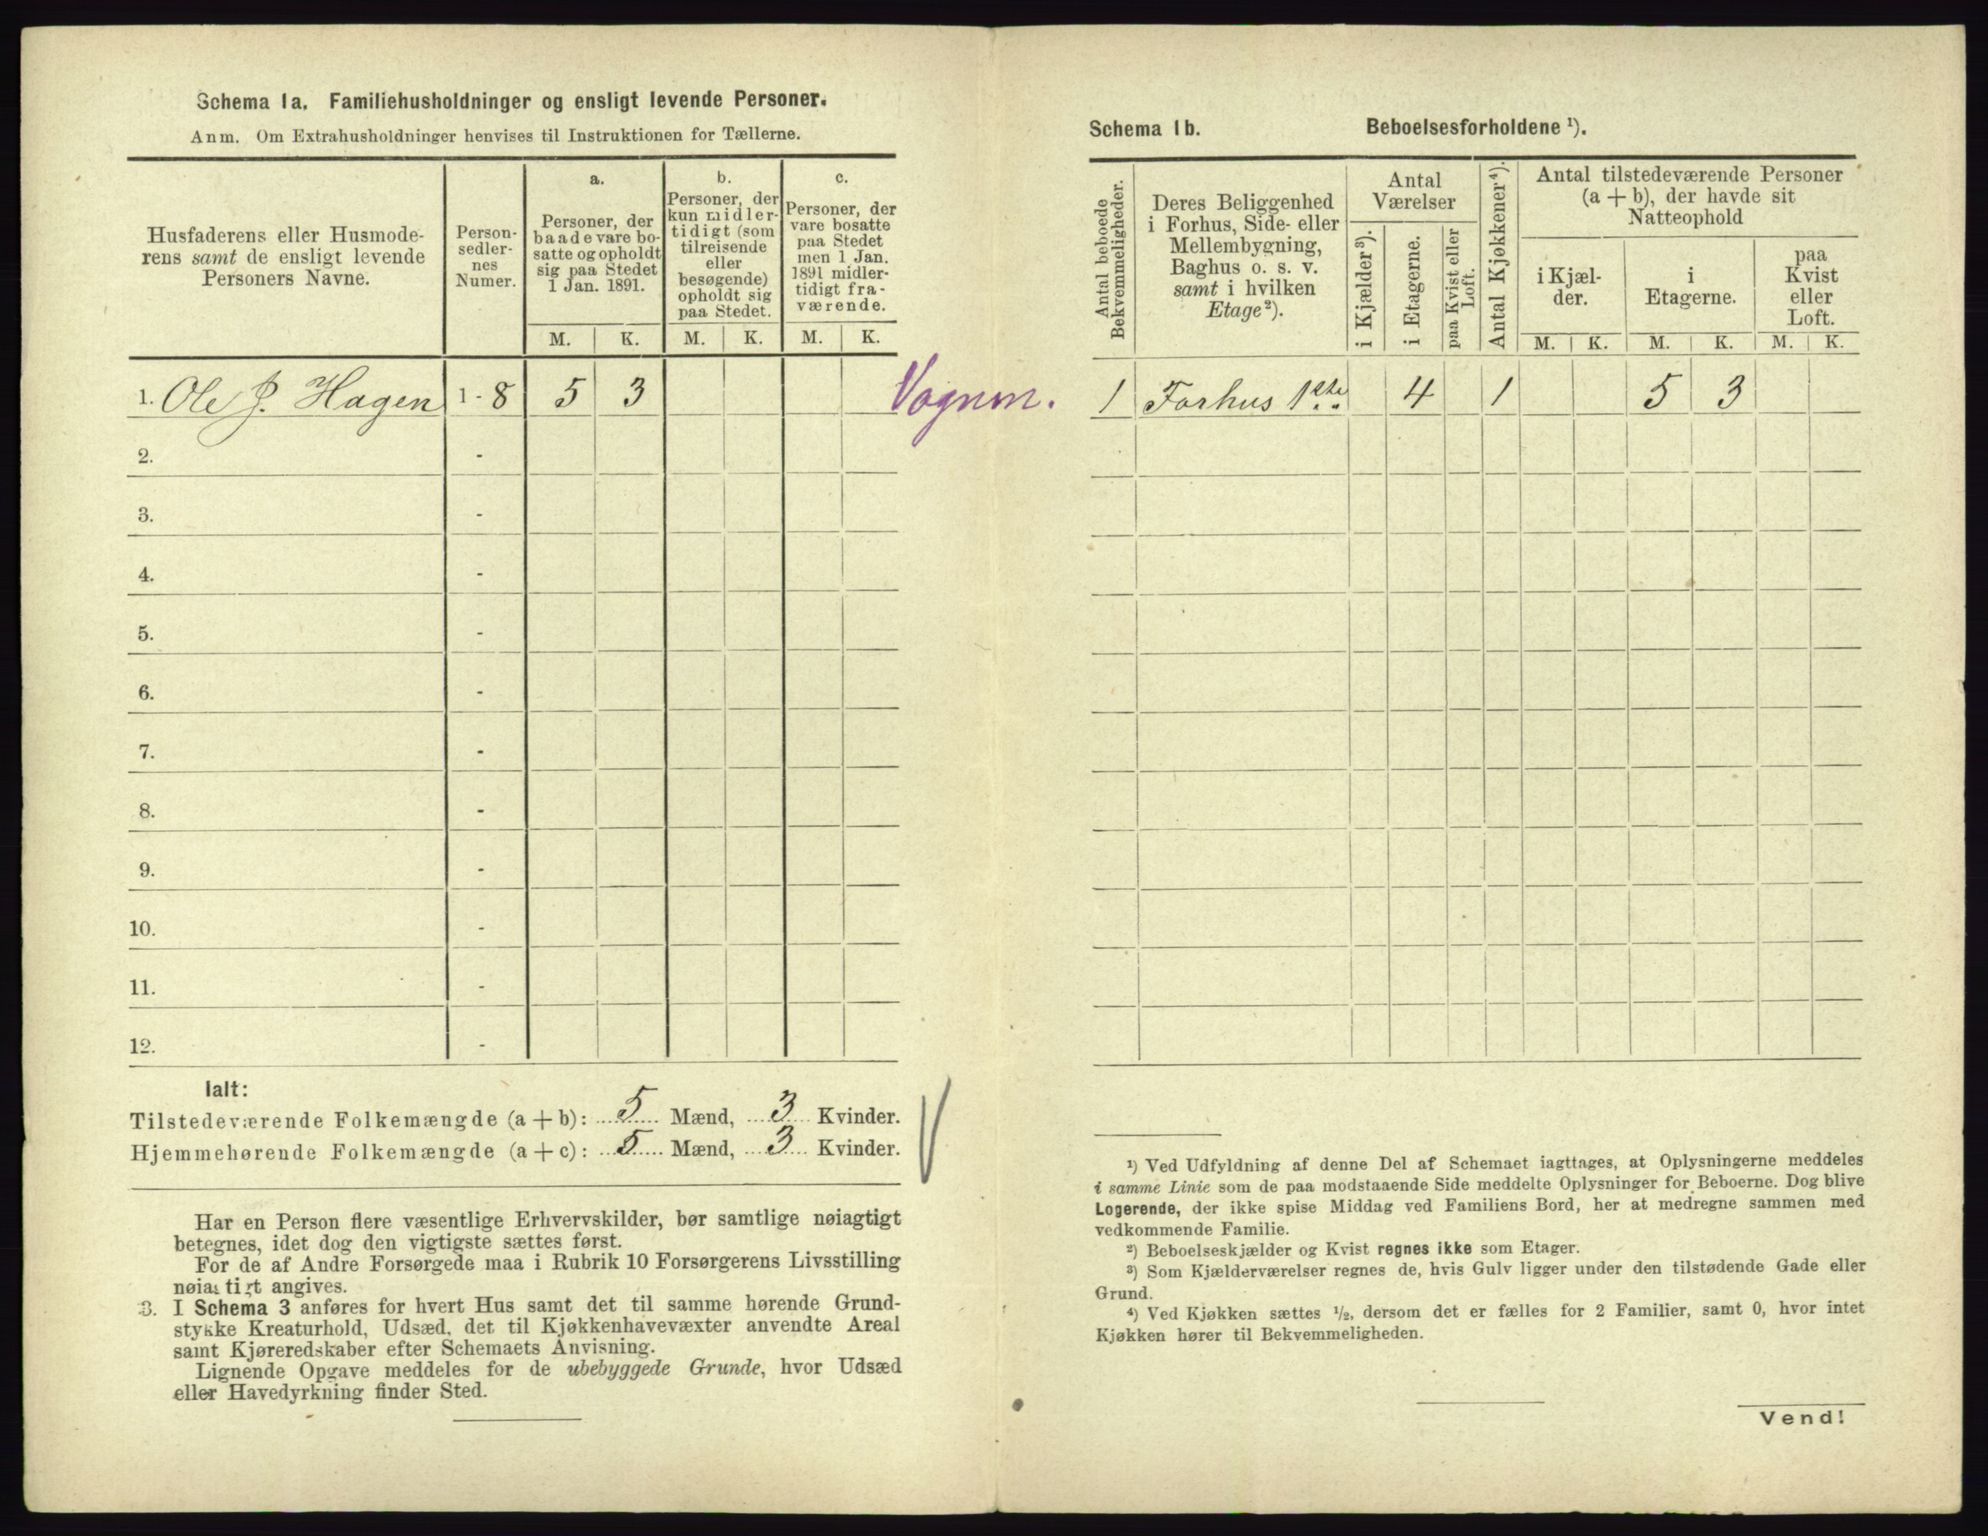 Schema 1a. Familiehusholdninger og ensligt levende Personer.
Anm. Om Extrahusholdninger henvises til Instruktionen for Tællerne.
Husfaderens eller Husmode-
rens samt de ensligt levende
Personers Navne.
Person-
sedler-
nes
Numer.
a.
Personer, der
baade vare bo-
satte og opholdt
sig paa Stedet
1 Jan. 1891.
b.
Personer, der
kun midler-
tidigt (som
tilreisende
eller
besøgende)
opholdt sig
paa Stedet.
c.
Personer, der
vare bosatte
paa Stedet
men 1 Jan.
1891 midler-
tidigt fra-
værende.
M. K. M. K. M. K.
1. Ole J. Hagen 1 - 8 5 3 Vognm.
2. -
3. -
4. -
5. -
6. -
7. -
8. -
9. -
10. -
11. -
12. -
Ialt:
Tilstedeværende Folkemængde (a + b): 5 Mænd, 3 Kvinder.
Hjemmehørende Folkemængde (a + c): 5 Mænd, 3 Kvinder.
Har en Person flere væsentlige Erhvervskilder, bør samtlige nøiagtigt
betegnes, idet dog den vigtigste sættes først.
For de af Andre Forsørgede maa i Rubrik 10 Forsørgerens Livsstilling
nøiagtigt angives.
3. I Schema 3 anføres for hvert Hus samt det til samme hørende Grund-
stykke Kreaturhold, Udsæd, det til Kjøkkenhavevæxter anvendte Areal
samt Kjøreredskaber efter Schemaets Anvisning.
Lignende Opgave meddeles for de ubebyggede Grunde, hvor Udsæd
eller Havedyrkning finder Sted.
Schema 1b. Beboelsesforholdene ¹).
Antal beboede
Bekvemmeligheder.
Deres Beliggenhed
i Forhus, Side- eller
Mellembygning,
Baghus o. s. v.
samt i hvilken
Etage ²).
Antal
Værelser
i Kjælder ³).
i Etagerne.
paa Kvist eller
Loft.
Antal Kjøkkener ⁴).
Antal tilstedeværende Personer
(a + b), der havde sit
Natteophold
i Kjæl-
der.
i
Etagerne.
paa
Kvist
eller
Loft.
M. K. M. K. M. K.
1 Forhus 1ste 4 1 5 3
¹) Ved Udfyldning af denne Del af Schemaet iagttages, at Oplysningerne meddeles
i samme Linie som de paa modstaaende Side meddelte Oplysninger for Beboerne. Dog blive
Logerende, der ikke spise Middag ved Familiens Bord, her at medregne sammen med
vedkommende Familie.
²) Beboelseskjælder og Kvist regnes ikke som Etager.
³) Som Kjælderværelser regnes de, hvis Gulv ligger under den tilstødende Gade eller
Grund.
⁴) Ved Kjøkken sættes ½, dersom det er fælles for 2 Familier, samt 0, hvor intet
Kjøkken hører til Bekvemmeligheden.
Vend!